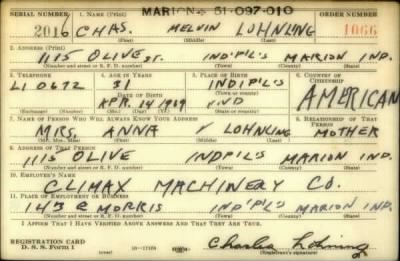 MARION 51-097-010
SERIAL NUMBER 1. NAME (Print) ORDER NUMBER
2016 CHAS. MELVIN LOHNLING 1066
(First) (Middle) (Last)
2. ADDRESS (Print)
1115 OLIVE ST. IND'P'L'S MARION IND.
(Number and street or R. F. D. number) (Town) (County) (State)
3. TELEPHONE 4. AGE IN YEARS 5. PLACE OF BIRTH 6. COUNTRY OF CITIZENSHIP
LI 0672 31 INDIP'L'S AMERICAN
DATE OF BIRTH (Town or county)
APR. 14 1909 IND
(Exchange) (Number) (Mo.) (Day) (Yr.) (State or country)
7. NAME OF PERSON WHO WILL ALWAYS KNOW YOUR ADDRESS 8. RELATIONSHIP OF THAT PERSON
MRS. ANNA V LOHNLING MOTHER
(Mr., Mrs., Miss) (First) (Middle) (Last)
9. ADDRESS OF THAT PERSON
1115 OLIVE INDPL'S MARION IND.
(Number and street or R. F. D. number) (Town) (County) (State)
10. EMPLOYER'S NAME
CLIMAX MACHINERY CO.
11. PLACE OF EMPLOYMENT OR BUSINESS
143 E MORRIS IND'P'L'S MARION IND.
(Number and street or R. F. D. number) (Town) (County) (State)
I AFFIRM THAT I HAVE VERIFIED ABOVE ANSWERS AND THAT THEY ARE TRUE.
REGISTRATION CARD
D. S. S. Form 1 Charles
(Registrant's signature)